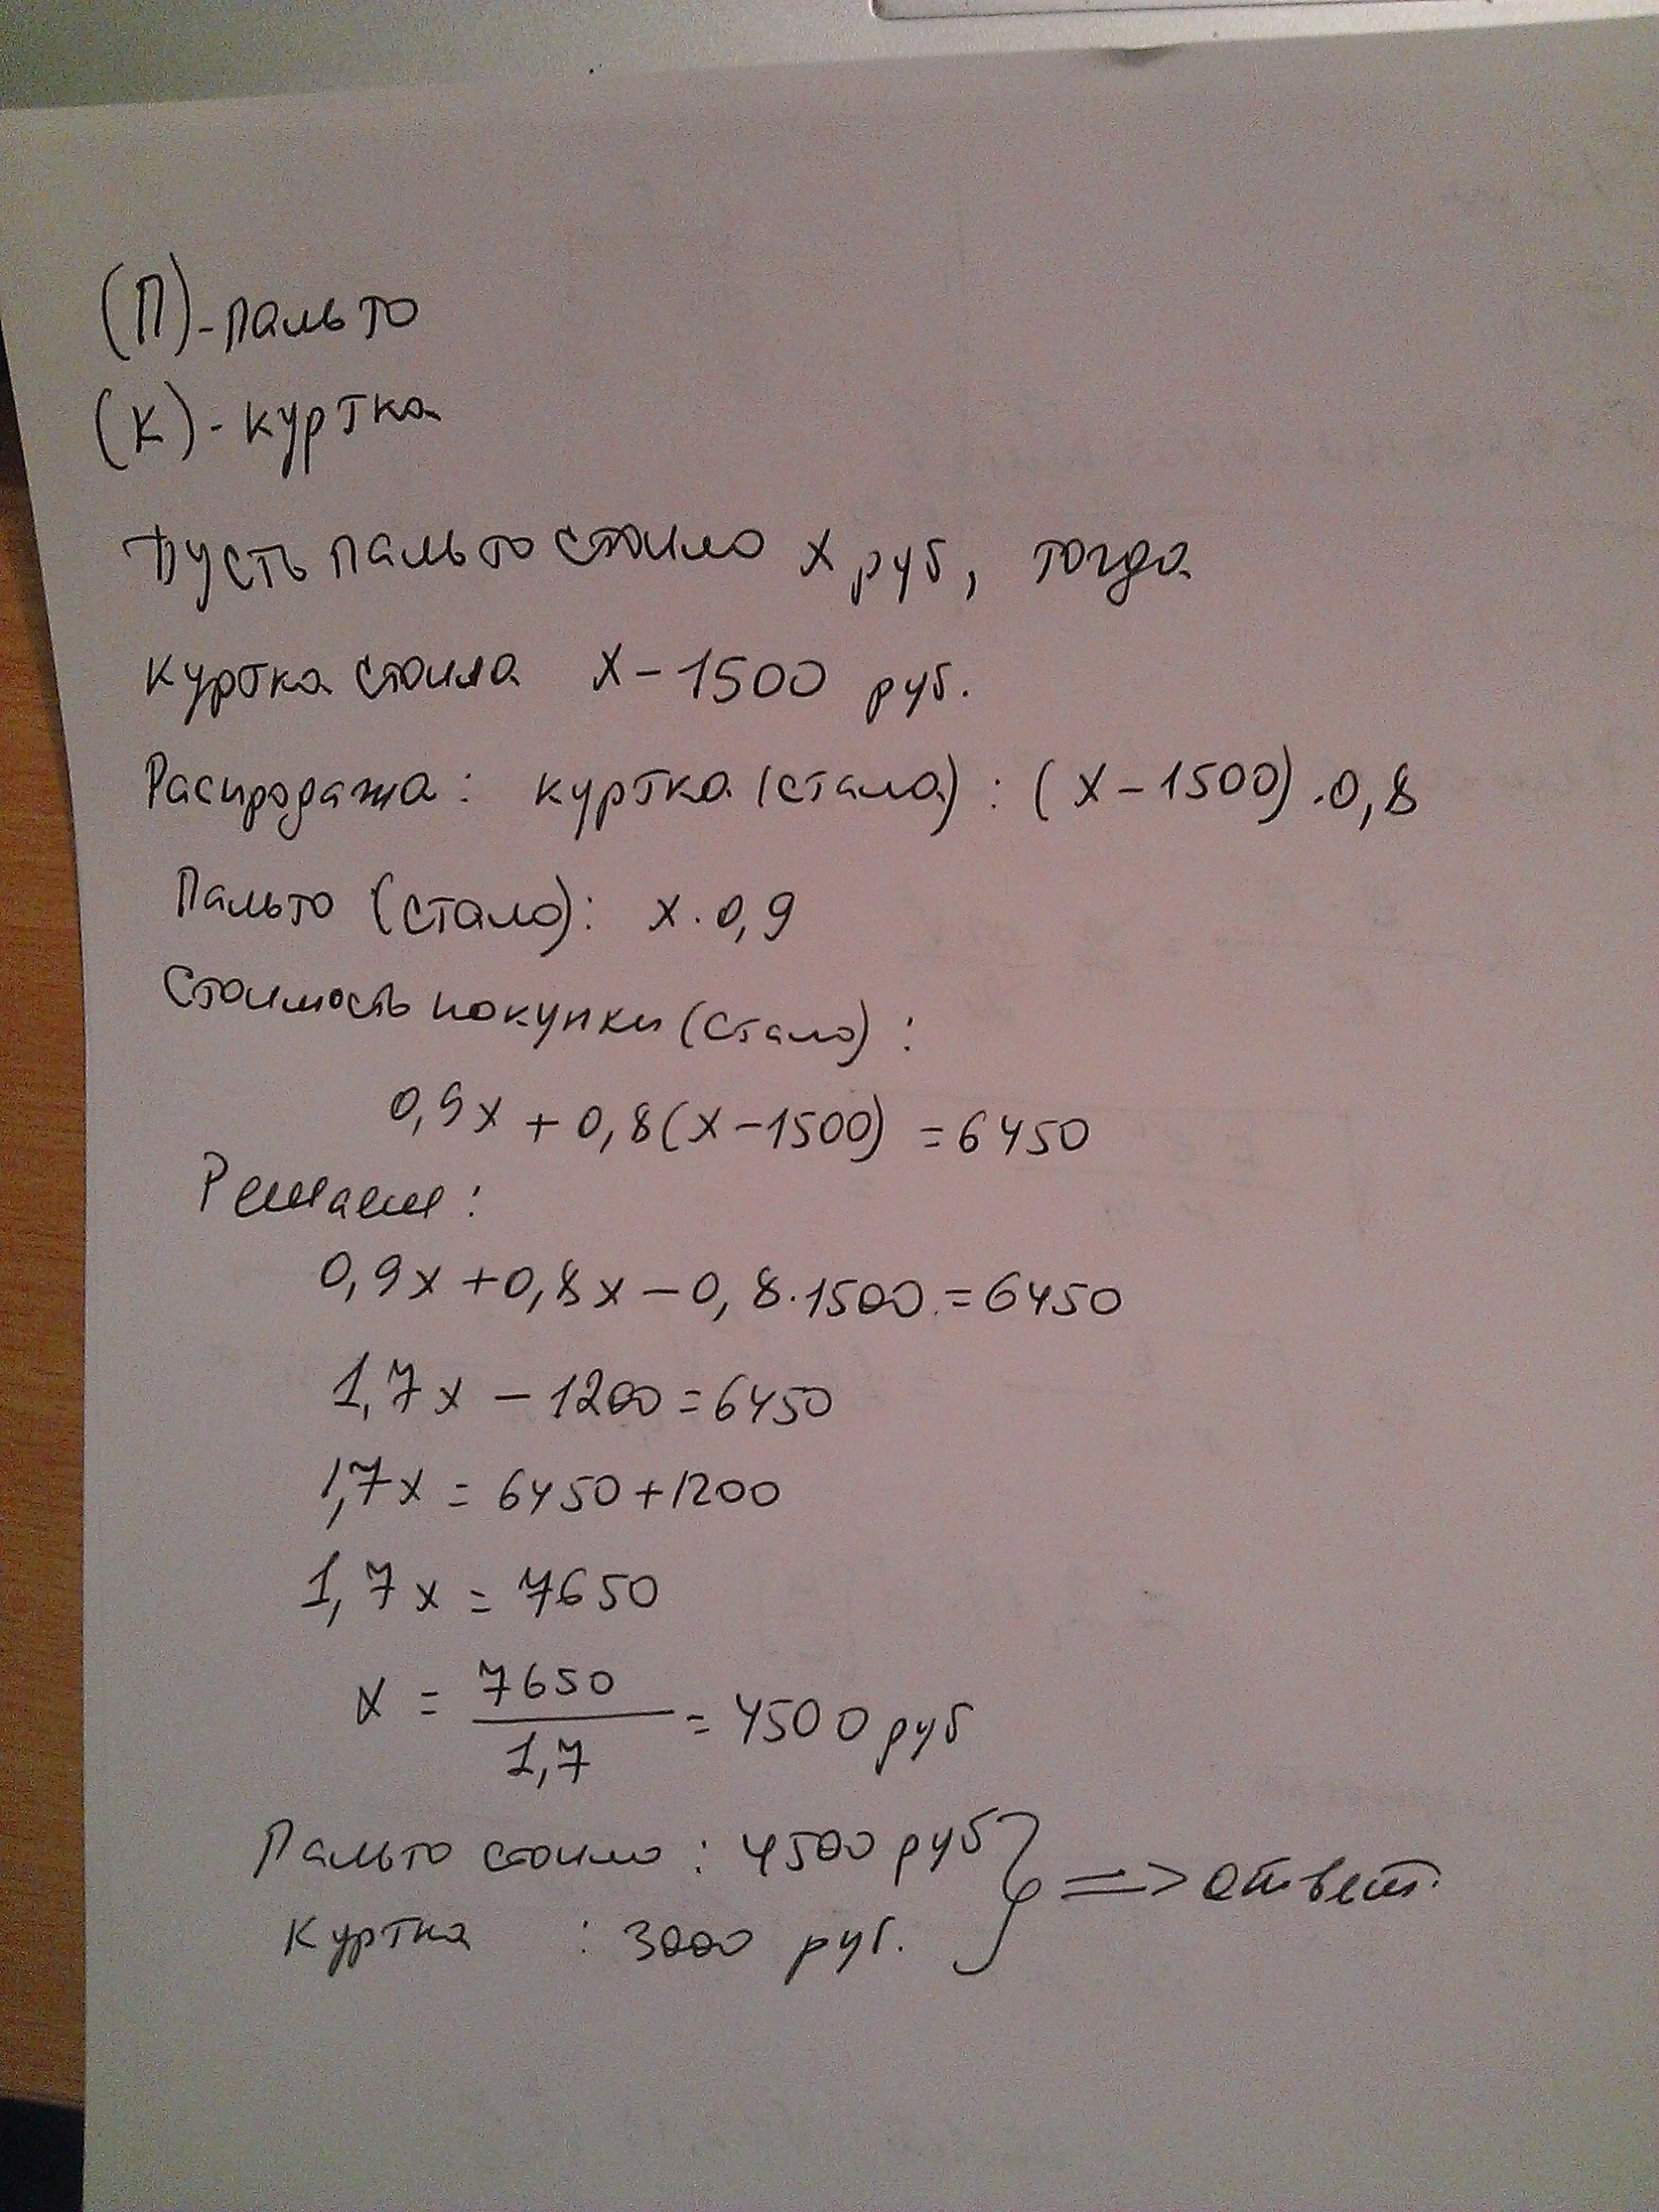 (П)-пальто
(К)-куртка
Пусть пальто стоило x руб, тогда
куртка стоила x-1500 руб.
Распродажа: куртка (стала): (x-1500)·0,8
Пальто (стало): x·0,9
Стоимость покупки (стало):
0,9x+0,8(x-1500)=6450
Решаем:
0,9x+0,8x-0,8·1500=6450
1,7x-1200=6450
1,7x=6450+1200
1,7x=7650
x = 7650/1,7 = 4500 руб
Пальто стоило: 4500 руб
Куртка : 3000 руб. } => ответ.